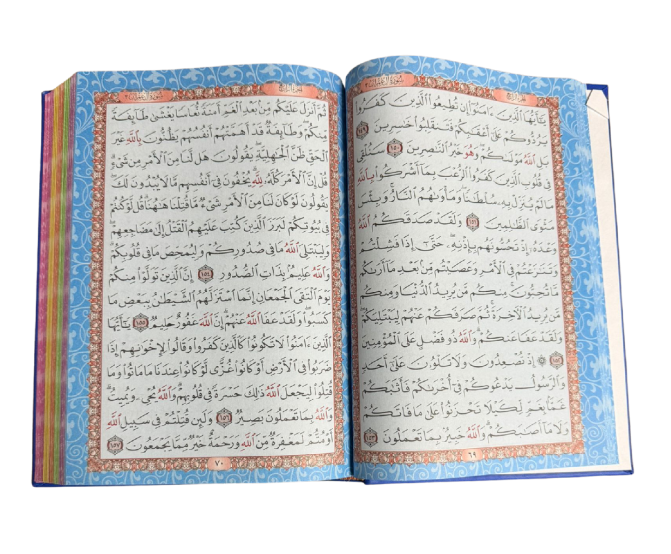 الجزء الرابع سورة آل عمران
يَٰٓأَيُّهَا ٱلَّذِينَ ءَامَنُوٓاْ إِن تُطِيعُواْ ٱلَّذِينَ كَفَرُواْ
يَرُدُّوكُمْ عَلَىٰٓ أَعْقَٰبِكُمْ فَتَنقَلِبُواْ خَٰسِرِينَ ١٤٩
بَلِ ٱللَّهُ مَوْلَىٰكُمْ وَهُوَ خَيْرُ ٱلنَّٰصِرِينَ ١٥٠ سَنُلْقِي
فِي قُلُوبِ ٱلَّذِينَ كَفَرُواْ ٱلرُّعْبَ بِمَآ أَشْرَكُواْ بِٱللَّهِ
مَا لَمْ يُنَزِّلْ بِهِۦ سُلْطَٰنًا وَمَأْوَىٰهُمُ ٱلنَّارُ وَبِئْسَ
مَثْوَى ٱلظَّٰلِمِينَ ١٥١ وَلَقَدْ صَدَقَكُمُ ٱللَّهُ
وَعْدَهُۥٓ إِذْ تَحُسُّونَهُم بِإِذْنِهِۦ حَتَّىٰٓ إِذَا فَشِلْتُمْ
وَتَنَٰزَعْتُمْ فِي ٱلْأَمْرِ وَعَصَيْتُم مِّنۢ بَعْدِ مَآ أَرَىٰكُم
مَّا تُحِبُّونَ مِنكُم مَّن يُرِيدُ ٱلدُّنْيَا وَمِنكُم
مَّن يُرِيدُ ٱلْءَاخِرَةَ ثُمَّ صَرَفَكُمْ عَنْهُمْ لِيَبْتَلِيَكُمْ
وَلَقَدْ عَفَا عَنكُمْ وَٱللَّهُ ذُو فَضْلٍ عَلَى ٱلْمُؤْمِنِينَ
١٥٢ ۞ إِذْ تُصْعِدُونَ وَلَا تَلْوُۥنَ عَلَىٰٓ أَحَدٍ
وَٱلرَّسُولُ يَدْعُوكُمْ فِيٓ أُخْرَىٰكُمْ فَأَثَٰبَكُمْ
غَمًّۢا بِغَمٍّ لِّكَيْلَا تَحْزَنُواْ عَلَىٰ مَا فَاتَكُمْ
وَلَا مَآ أَصَٰبَكُمْ وَٱللَّهُ خَبِيرٌۢ بِمَا تَعْمَلُونَ ١٥٣
٦٩
الجزء الرابع سورة آل عمران
ثُمَّ أَنزَلَ عَلَيْكُم مِّنۢ بَعْدِ ٱلْغَمِّ أَمَنَةً نُّعَاسًا يَغْشَىٰ طَآئِفَةً
مِّنكُمْ وَطَآئِفَةٌ قَدْ أَهَمَّتْهُمْ أَنفُسُهُمْ يَظُنُّونَ بِٱللَّهِ غَيْرَ
ٱلْحَقِّ ظَنَّ ٱلْجَٰهِلِيَّةِ يَقُولُونَ هَل لَّنَا مِنَ ٱلْأَمْرِ مِن شَيْءٍ
قُلْ إِنَّ ٱلْأَمْرَ كُلَّهُۥ لِلَّهِ يُخْفُونَ فِيٓ أَنفُسِهِم مَّا لَا يُبْدُونَ لَكَ
يَقُولُونَ لَوْ كَانَ لَنَا مِنَ ٱلْأَمْرِ شَيْءٌ مَّا قُتِلْنَا هَٰهُنَا قُل لَّوْ كُنتُمْ
فِي بُيُوتِكُمْ لَبَرَزَ ٱلَّذِينَ كُتِبَ عَلَيْهِمُ ٱلْقَتْلُ إِلَىٰ مَضَاجِعِهِمْ
وَلِيَبْتَلِيَ ٱللَّهُ مَا فِي صُدُورِكُمْ وَلِيُمَحِّصَ مَا فِي قُلُوبِكُمْ
وَٱللَّهُ عَلِيمٌۢ بِذَاتِ ٱلصُّدُورِ ١٥٤ إِنَّ ٱلَّذِينَ تَوَلَّوْاْ مِنكُمْ
يَوْمَ ٱلْتَقَى ٱلْجَمْعَانِ إِنَّمَا ٱسْتَزَلَّهُمُ ٱلشَّيْطَٰنُ بِبَعْضِ مَا
كَسَبُواْ وَلَقَدْ عَفَا ٱللَّهُ عَنْهُمْ إِنَّ ٱللَّهَ غَفُورٌ حَلِيمٌ ١٥٥ يَٰٓأَيُّهَا
ٱلَّذِينَ ءَامَنُواْ لَا تَكُونُواْ كَٱلَّذِينَ كَفَرُواْ وَقَالُواْ لِإِخْوَٰنِهِمْ إِذَا
ضَرَبُواْ فِي ٱلْأَرْضِ أَوْ كَانُواْ غُزًّى لَّوْ كَانُواْ عِندَنَا مَا مَاتُواْ وَمَا
قُتِلُواْ لِيَجْعَلَ ٱللَّهُ ذَٰلِكَ حَسْرَةً فِي قُلُوبِهِمْ وَٱللَّهُ يُحْيِۦ وَيُمِيتُ
وَٱللَّهُ بِمَا تَعْمَلُونَ بَصِيرٌ ١٥٦ وَلَئِن قُتِلْتُمْ فِي سَبِيلِ ٱللَّهِ
أَوْ مُتُّمْ لَمَغْفِرَةٌ مِّنَ ٱللَّهِ وَرَحْمَةٌ خَيْرٌ مِّمَّا يَجْمَعُونَ ١٥٧
٧٠